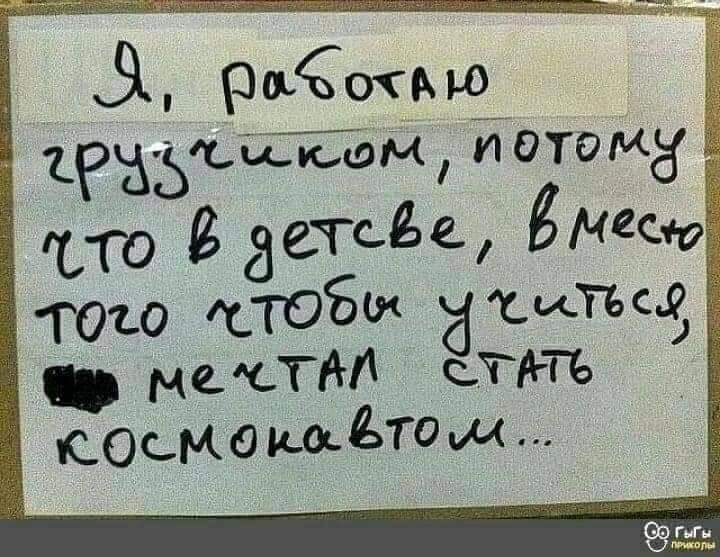 Я, работаю
грузчиком, потому
что в детсве, вместо
того чтобы учиться,
мечтал стать
космонавтом...
гыгы
приколы